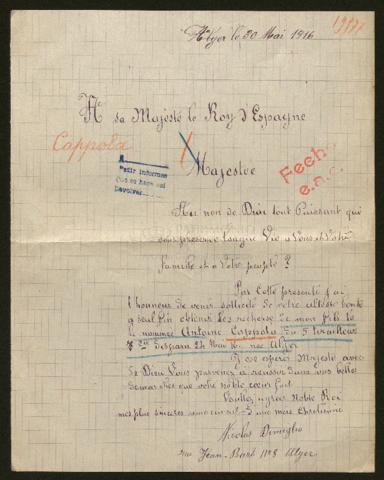 Alger le 30 Mai 1916
A sa Majesté le Roy d'Espagne
Cappola
Majestée
Pedir informes
Feeh
e.a.c.
Au non de Dieu tout Puissant que
vous preserve longue Vie a Vous et Votre
famille et a Votre peuple
Par Cette presente j'ai
l'honneur de venir sollicité de votre Altesse bonté
a seul fin obtenir les recherche de mon fils
le nommée Antoine Coppola du 5 tirailleur
disparu né Alger
J'ose espérer Majesté avec
de Dieu Vous parvenez a reussir dans vos belles
demarches que votre noble cœur fait
Veuillez agrée Noble Roi
mes plus sinceres d'une mere
Nicolas Dimeglio
rue Jean-Bart N° 8 Alger